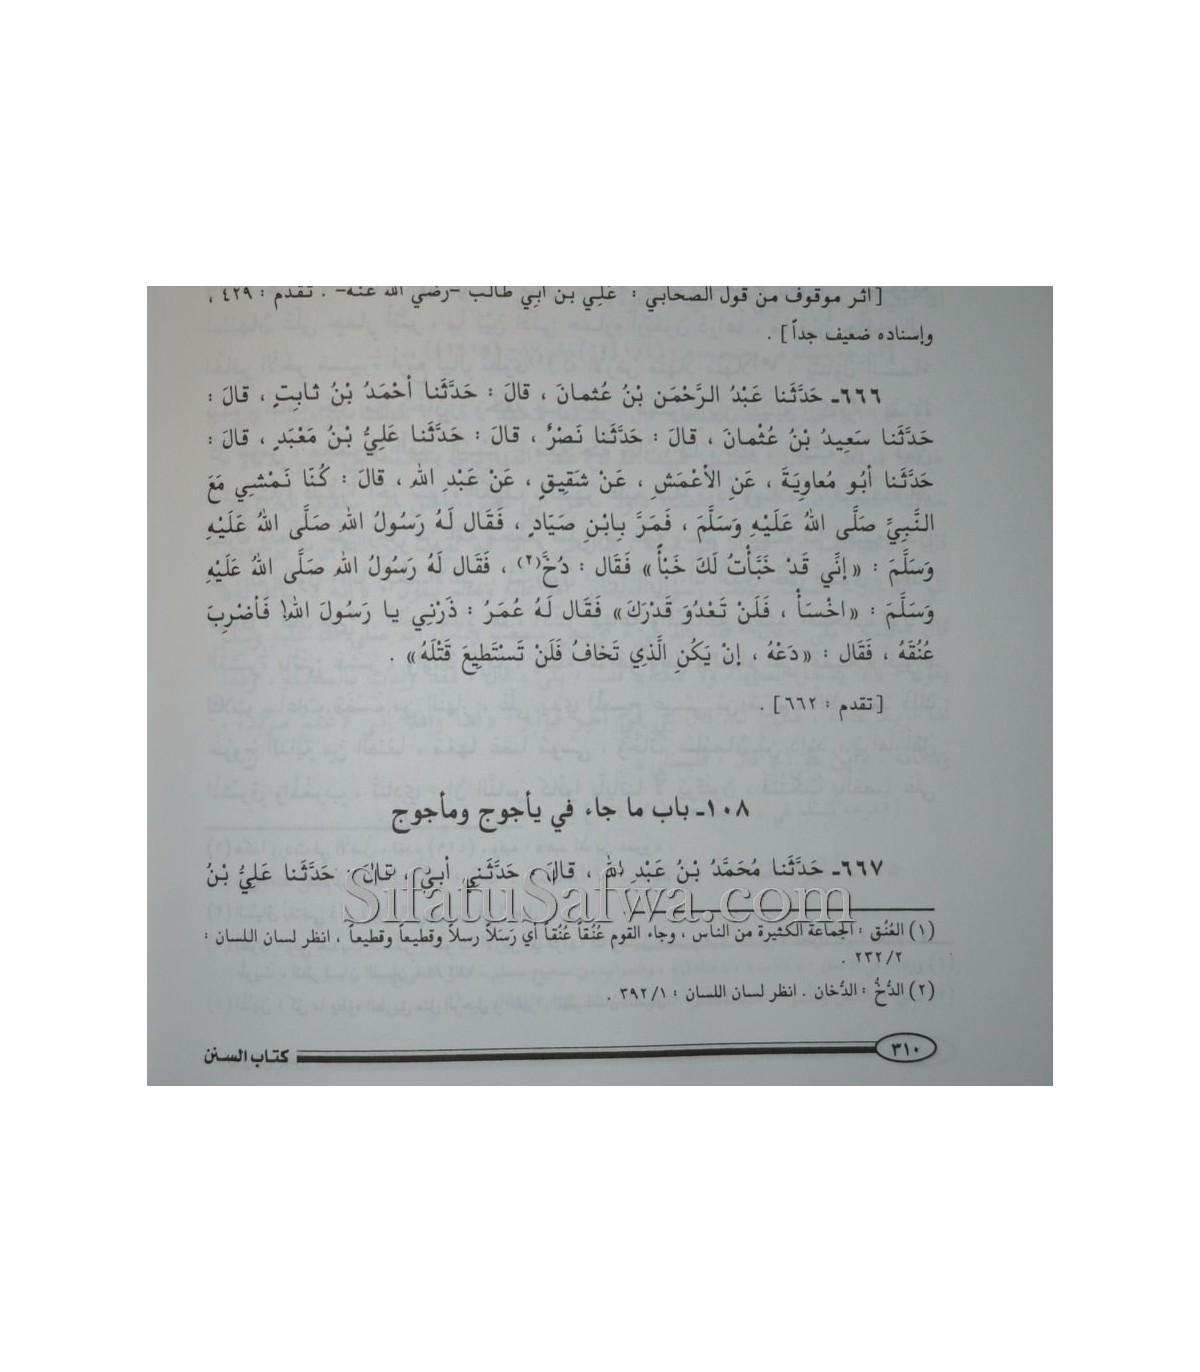 [أثر موقوف من قول الصحابي : عَلِي بن أبي طالب -رضي الله عنه- . تقدم : ٤٢٩ ،
وإسناده ضعيف جداً] .
٦٦٦ـ حَدَّثَنا عَبْدُ الرَّحْمَن بْنُ عُثمانَ ، قالَ : حَدَّثَنا أحْمَدُ بْنُ ثابِتٍ ، قالَ :
حَدَّثَنا سَعِيدُ بْنُ عُثْمانَ ، قالَ : حَدَّثَنا نَصْرٌ ، قالَ : حَدَّثَنا عَلِيُّ بْنُ مَعْبَدٍ ، قالَ :
حَدَّثَنا أبُو مُعاوِيَةَ ، عَنِ الأعْمَشِ ، عَنْ شَقِيقٍ ، عَنْ عَبْدِ اللهِ ، قالَ : كُنَا نَمْشِي مَعَ
النَّبِيِّ صَلَّى اللهُ عَلَيْهِ وَسَلَّمَ ، فَمَرَّ بِابْنِ صَيَادٍ ، فَقَال لَهُ رَسُولُ اللهِ صَلَّى اللهُ عَلَيْهِ
وَسَلَّمَ : «إنِّي قَدْ خَبَّأْتُ لَكَ خَبْأً» فَقَال : دُخَّ(٢) ، فَقَال لَهُ رَسُولُ اللهِ صَلَّى اللهُ عَلَيْهِ
وَسَلَّمَ : «اخْسَأْ ، فَلَنْ تَعْدُوَ قَدْرَكَ» فَقَال لَهُ عُمَرُ : ذَرْنِي يا رَسُولَ اللهِ! فَأضْرِبَ
عُنُقَهُ ، فَقَال : «دَعْهُ ، إنْ يَكُنِ الَّذِي تَخافُ فَلَنْ تَسْتَطِيعَ قَتْلَهُ» .
[تقدم : ٦٦٢] .
١٠٨ـ باب ما جاء في يأجوج ومأجوج
٦٦٧ـ حَدَّثَنا مُحَمَّدُ بْنُ عَبْدِ اللهِ ، قالَ : حَدَّثَنِي أبِي ، قالَ : حَدَّثَنا عَلِيُّ بْنُ
SifatuSafwa.com
(١) العُنُق : الجماعة الكثيرة من الناس ، وجاء القوم عُنُقاً عُنُقاً أي رَسَلاً رسلاً وقطيعاً وقطيعاً ، انظر لسان اللسان :
٢/ ٢٣٢ .
(٢) الدُّخُّ : الدُّخان . انظر لسان اللسان : ١/ ٣٩٢ .
٣١٠ كتاب السنن